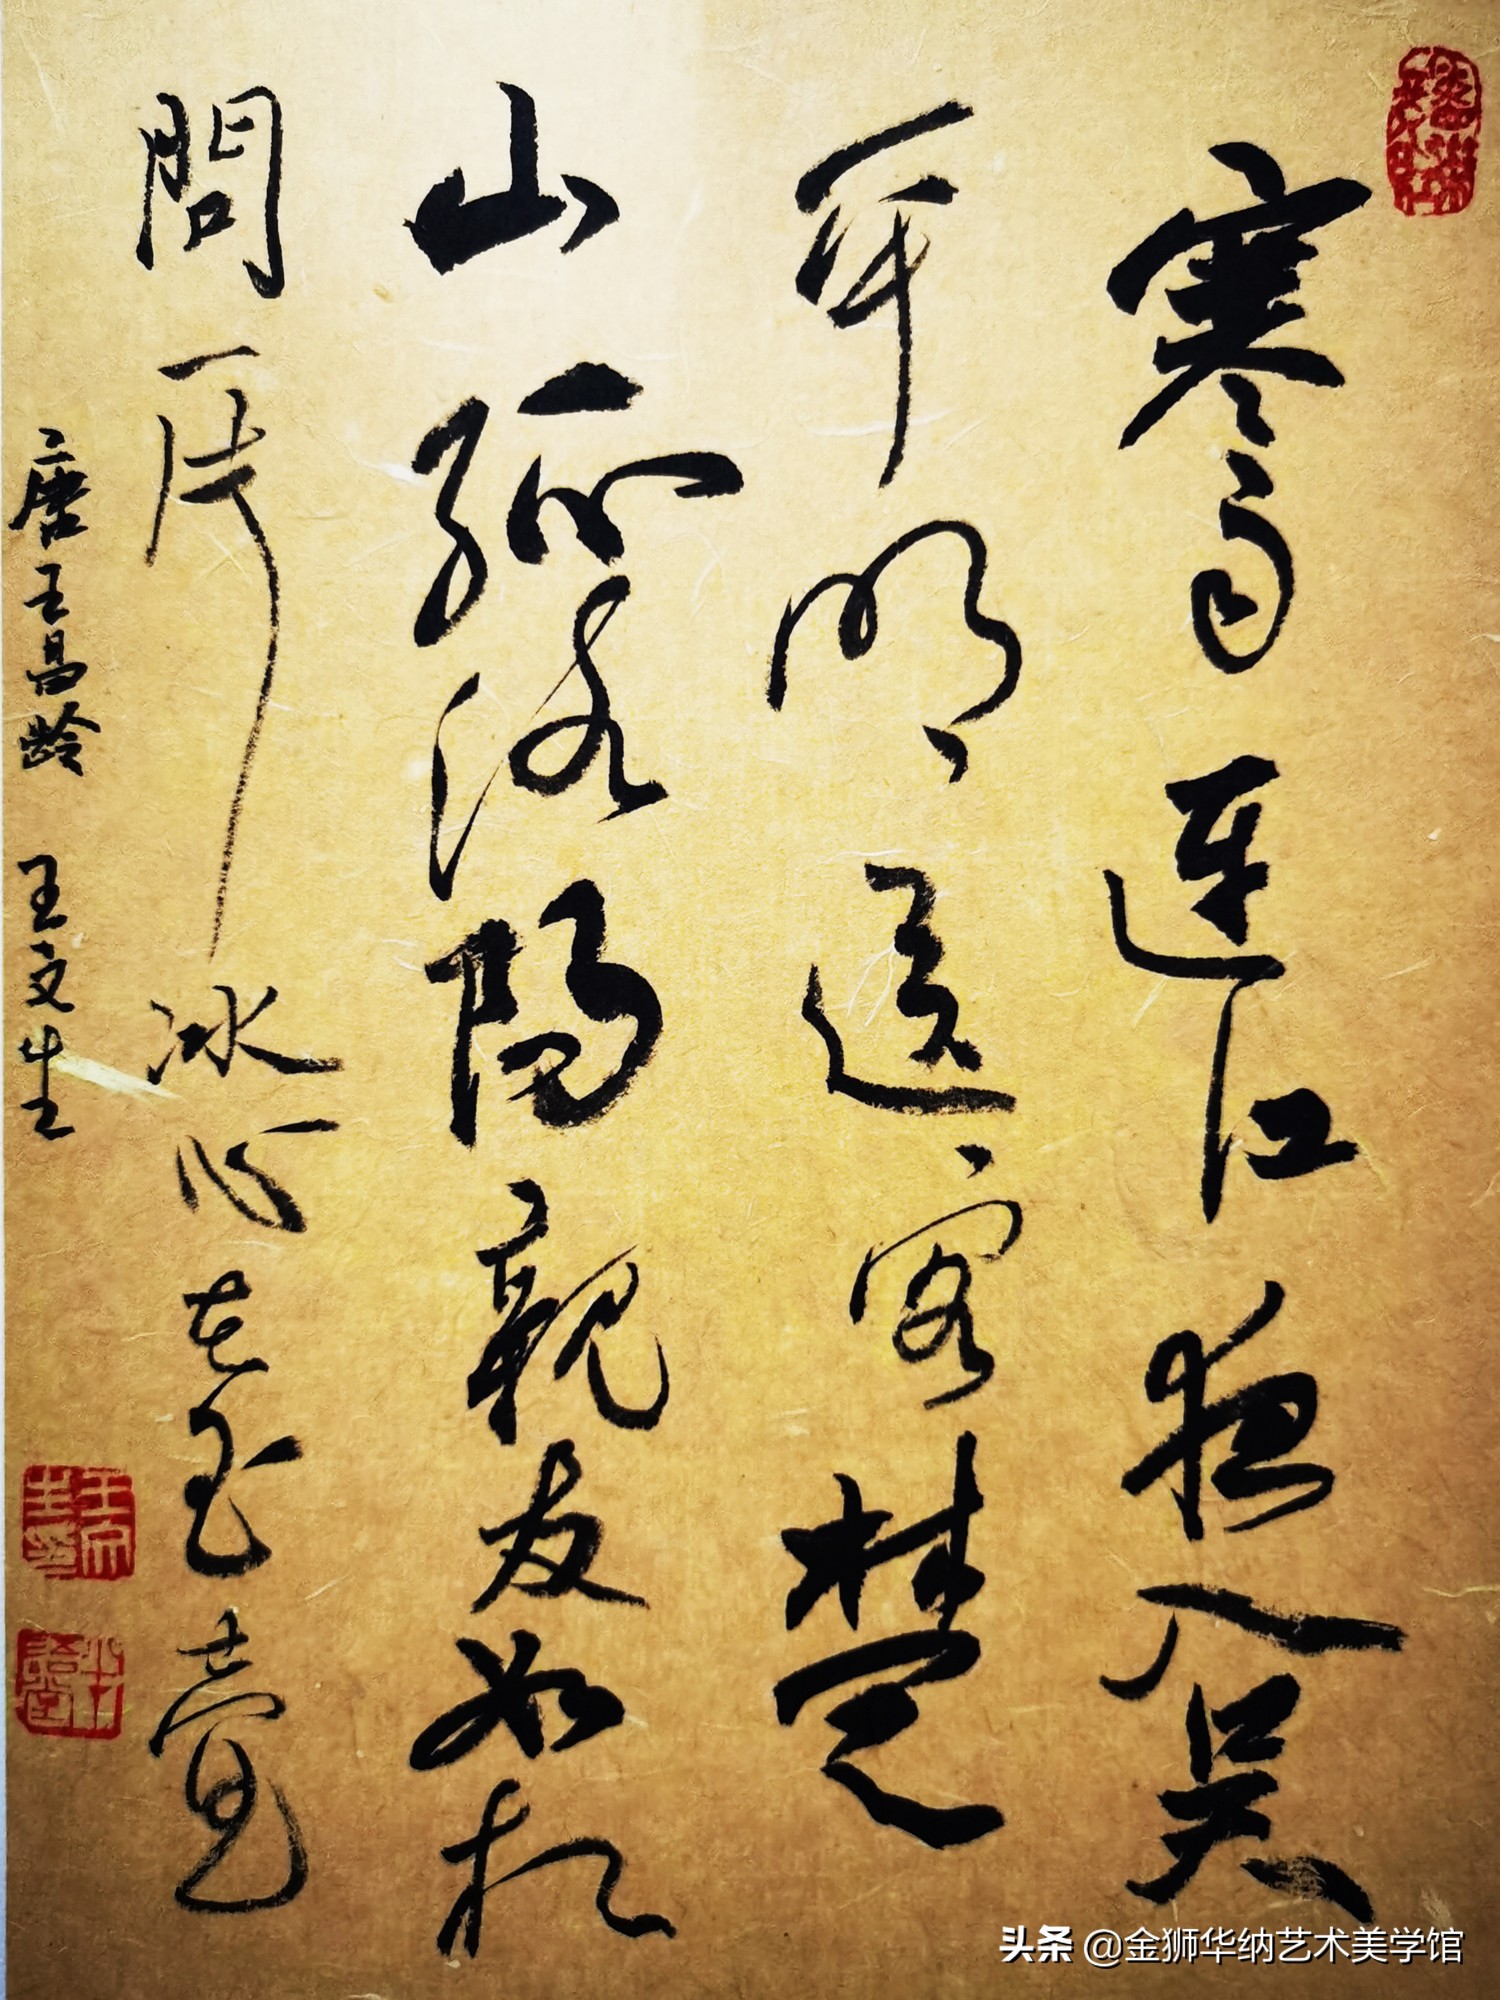 寒雨連江夜入吴
平明送客楚
山孤洛陽親友如相
問一片冰心在玉壺
唐王昌齡 王文生
头条 @金狮华纳艺术美学馆